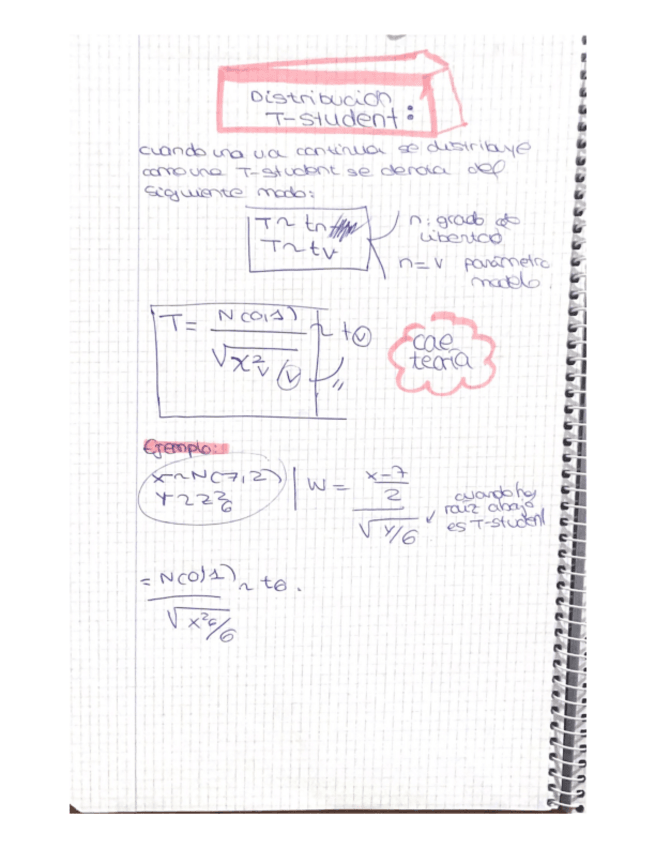 Distribución
T-student:
cuando una va continua se distribuye
como una T-student se denota del
siguiente modo:
T ~ tn
T ~ tv
n: grado de
libertad
n = v parámetro
modelo.
T = N(0,1) / √(χ²v / v) ~ tv
cae
teoría
Ejemplo:
x ~ N(7,2)
Y ~ χ²6
W = (x-7 / 2) / √(Y/6)
cuando hay
raiz abajo
es T-student
= N(0,1) / √(x²6/6) ~ t6.